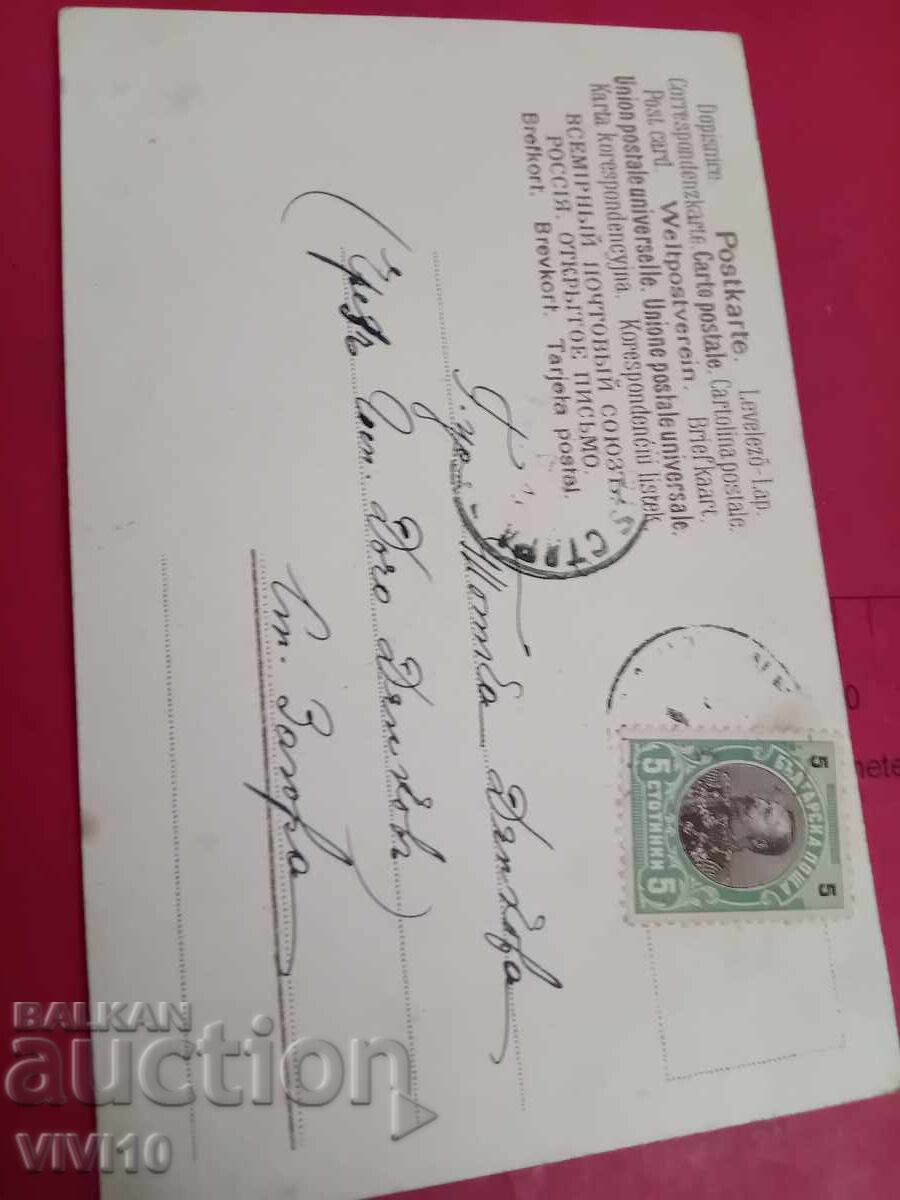 Dopisnice. Postkarte. Levelező-Lap.
Correspondenzkarte. Carte postale. Cartolina postale.
Post card. Weltpostverein. Briefkaart.
Union postale universelle. Unione postale universale.
Karta korespondencyjna. Korespondenční listek
ВСЕМІРНЫЙ ПОЧТОВЫЙ СОЮЗЪ
РОССІЯ. ОТКРЫТОЕ ПИСЬМО.
Brefkort. Brevkort. Tarjeta postal.
БЪЛГАРСКА ПОЩА
5 5
5 СТОТИНКИ 5
Дянкова
(Чрезъ Дянковъ)
Ст. Загора
BALKAN
auction
VIVI10